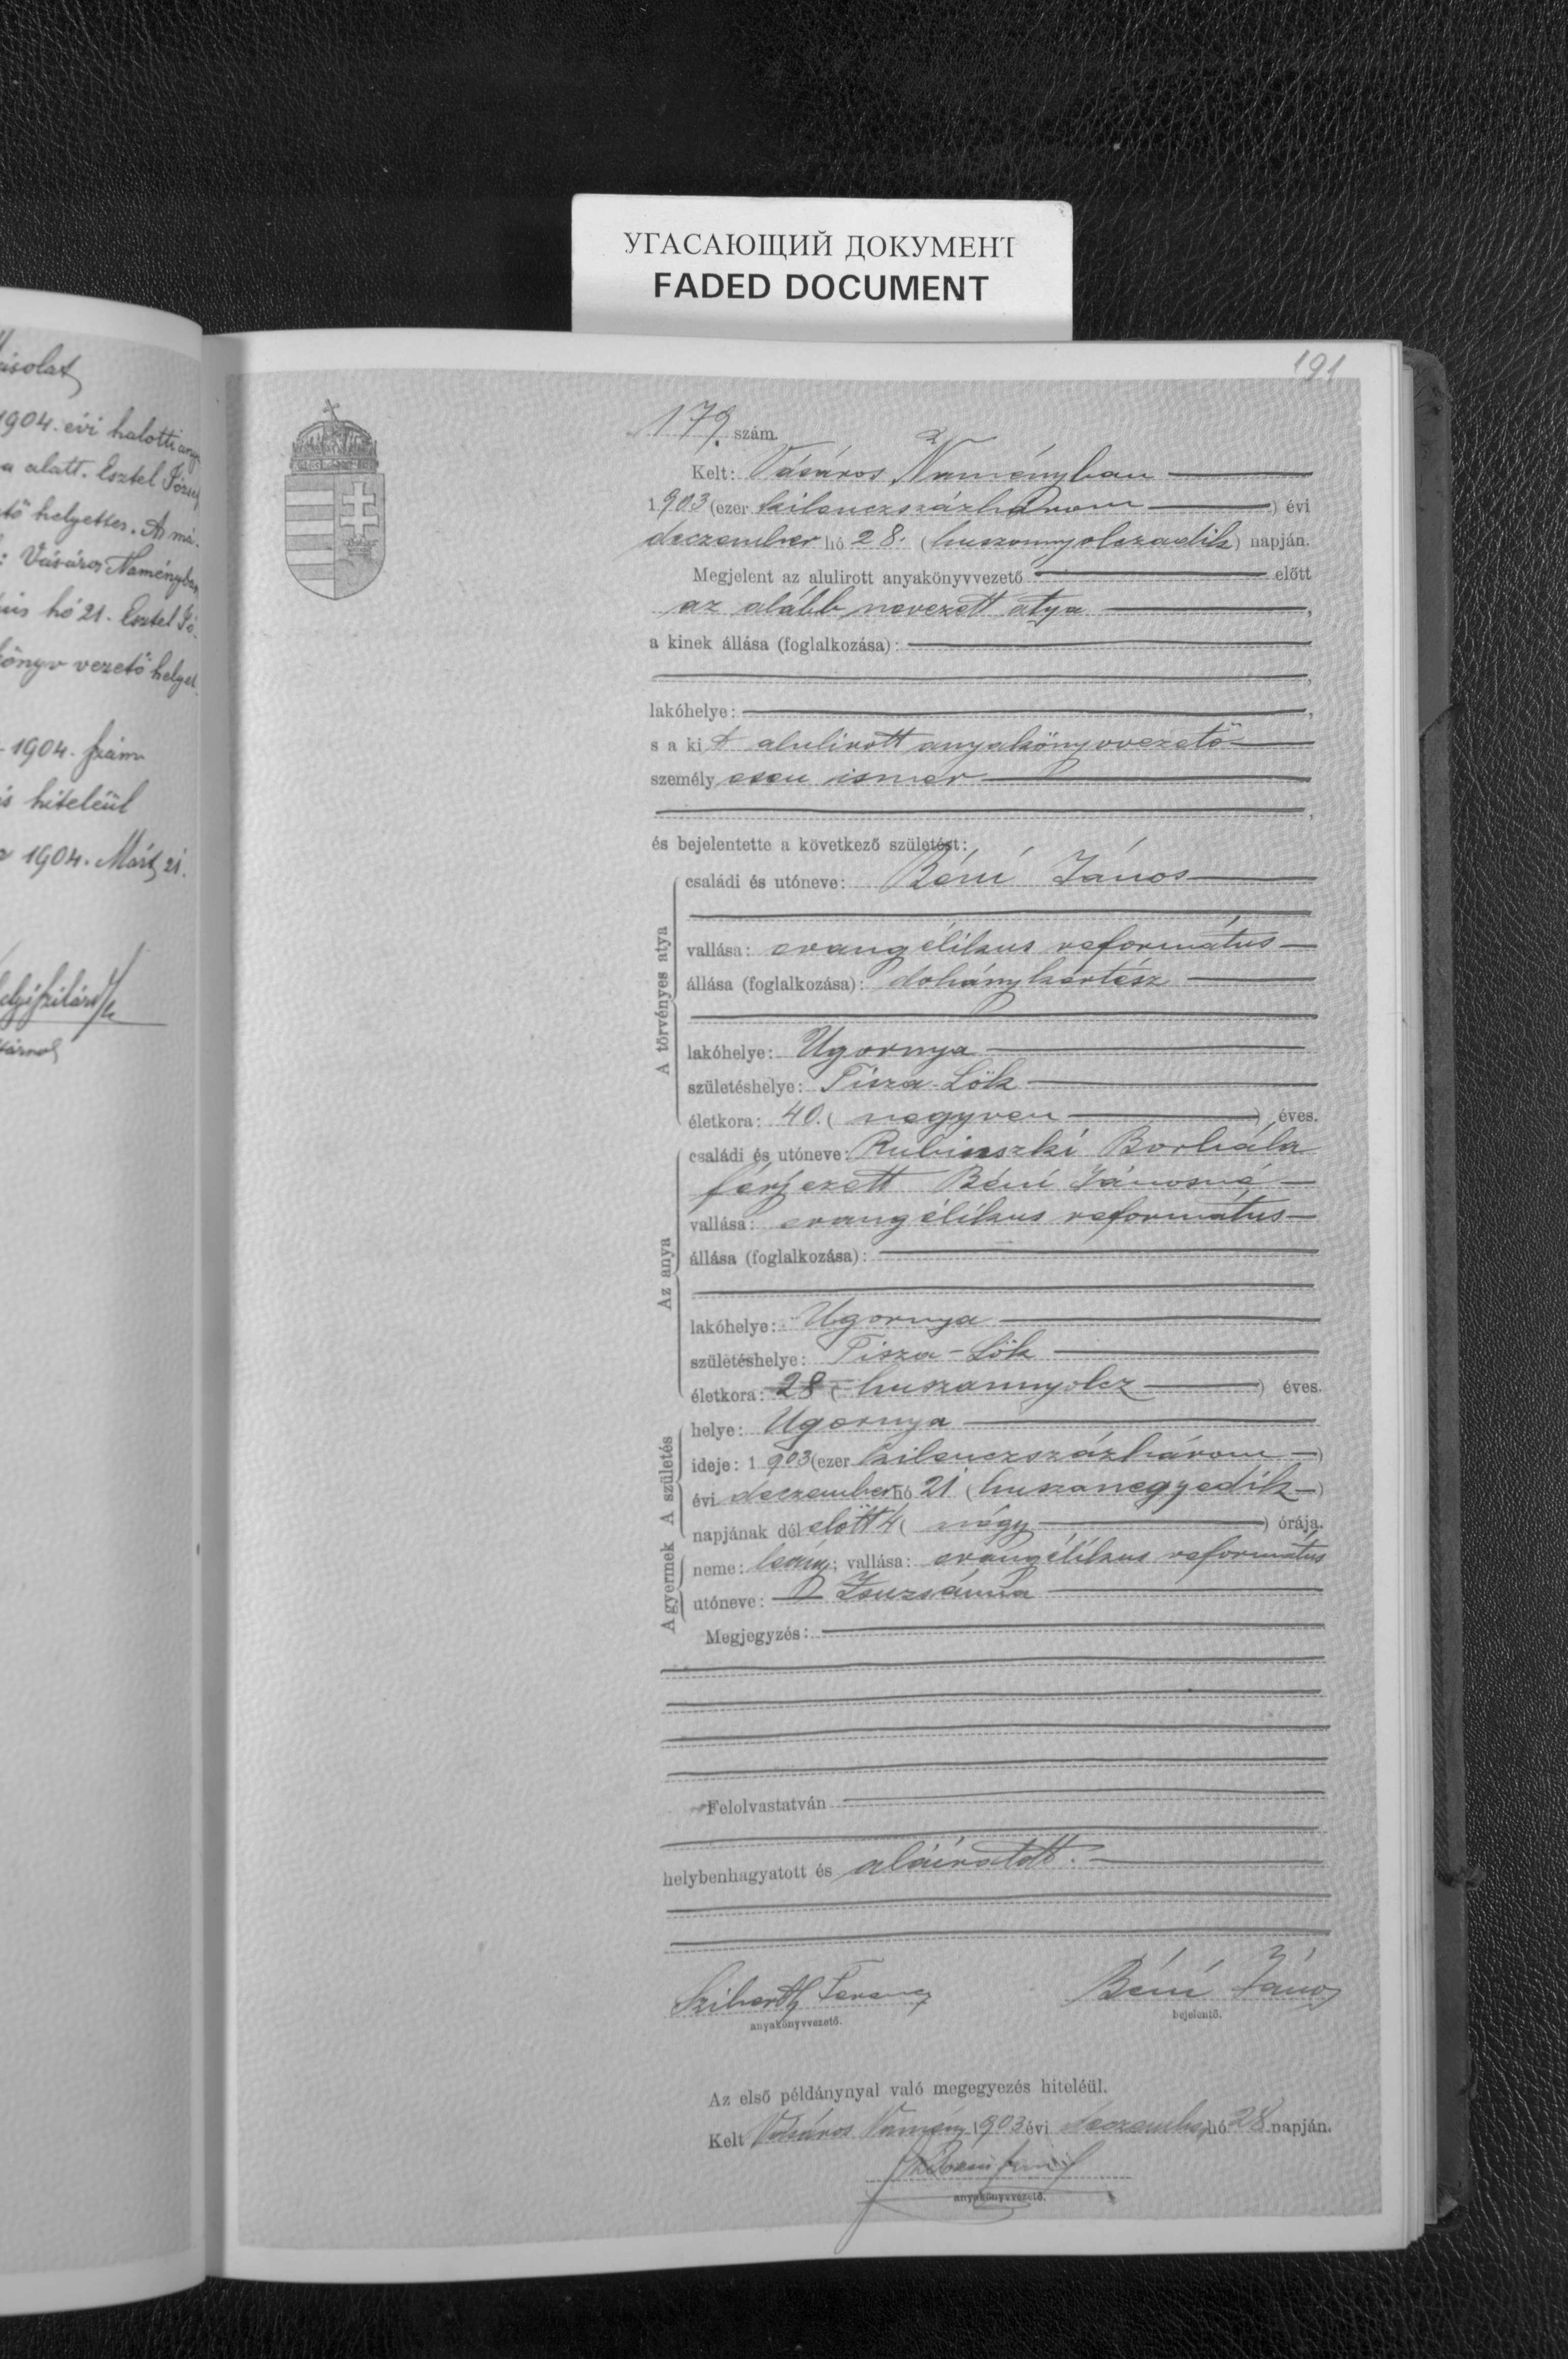 УГАСАЮЩИЙ ДОКУМЕНТ
FADED DOCUMENT
ásolat
1904. évi halotti any
a alatt. Esztel Józsf
tő helyettes. A má-
: Vásáros Naményban
ius hó 21. Esztel Jó-
könyv vezető helyet.
1904. szám
is hiteléül
1904. Márt 21.
191
179. szám.
Kelt: Vásáros Naményban
1903 (ezer kilenczszázhárom) évi
deczember hó 28. (huszonnyolczadik) napján.
Megjelent az alulirott anyakönyvvezető előtt
az alább nevezett atya,
a kinek állása (foglalkozása):
lakóhelye:
s a kit alulirott anyakönyvvezető
személyesen ismer
és bejelentette a következő születést:
A törvényes atya
családi és utóneve: Béni János
vallása: evangélikus református
állása (foglalkozása): dohánykertész
lakóhelye: Ugornya
születéshelye: Tisza-Lök
életkora: 40. (negyven) éves.
Az anya
családi és utóneve: Rubinszki Borbála
férjezett Béni Jánosné
vallása: evangélikus református
állása (foglalkozása):
lakóhelye: Ugornya
születéshelye: Tisza-Lök
életkora: 28 (huszannyolcz) éves.
A születés
helye: Ugornya
ideje: 1903 (ezer kilenczszázhárom)
évi deczember hó 21 (huszanegyedik)
napjának délelőtt 4 (négy) órája.
A gyermek
neme: leány; vallása: evangélikus református
utóneve: Zsuzsánna
Megjegyzés:
Felolvastatván
helybenhagyatott és aláiratott.
Ferencz Béni János
anyakönyvvezető. bejelentő.
Az első példánynyal való megegyezés hiteléül.
Kelt Vásáros Namény 1903 évi deczember hó 28 napján.
anyakönyvvezető.